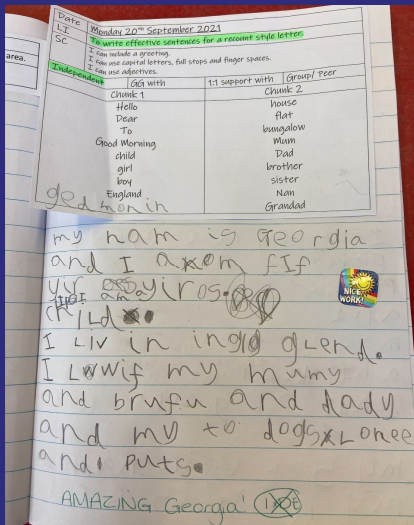 area.
Date Monday 20th September 2021
LI To write effective sentences for a recount style letter.
SC I can include a greeting.
I can use capital letters, full stops and finger spaces.
I can use adjectives.
Independent GG with 1:1 support with Group/ Peer
Chunk 1 Chunk 2
Hello house
Dear flat
To bungalow
Good Morning Mum
child Dad
girl brother
boy sister
England Nan
Grandad
ged monin
my nam is Georgia
and I om fIf
yir yiros.
I am a
chiLd
I Liv in glend.
I wif my mumy
and brufu and dady
and my to dogs Lonee
and puts.
NICE WORK!
AMAZING Georgia!